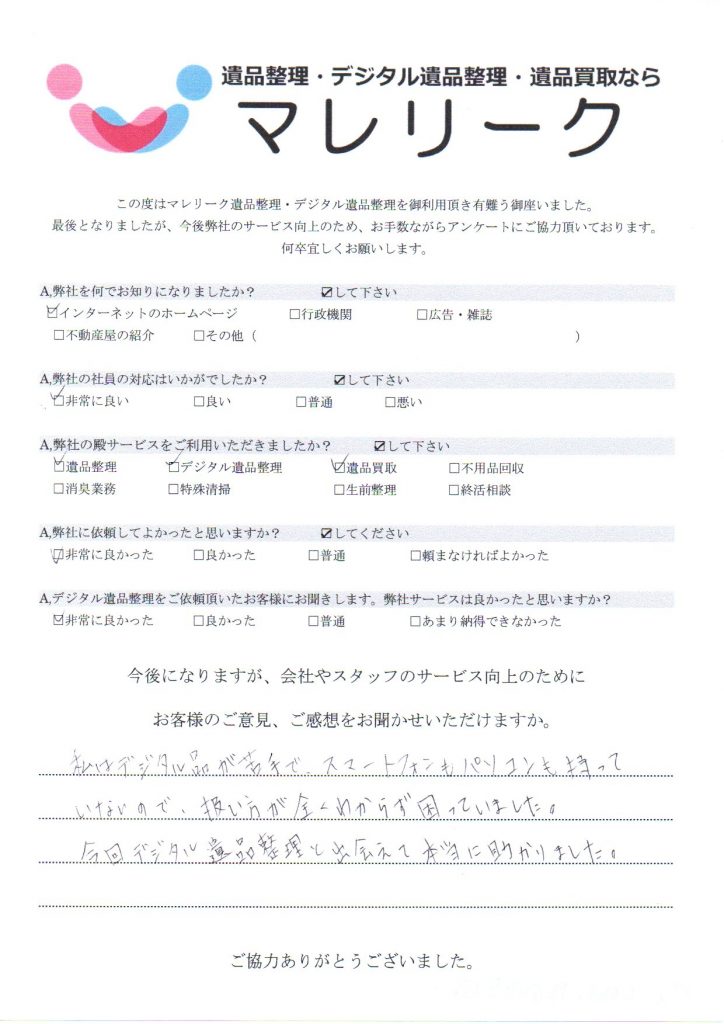 遺品整理・デジタル遺品整理・遺品買取なら
マレリーク
この度はマレリーク遺品整理・デジタル遺品整理を御利用頂き有難う御座いました。
最後となりましたが、今後弊社のサービス向上のため、お手数ながらアンケートにご協力頂いております。
何卒宜しくお願いします。
A,弊社を何でお知りになりましたか？ ☑して下さい
☑インターネットのホームページ □行政機関 □広告・雑誌
□不動産屋の紹介 □その他（ ）
A,弊社の社員の対応はいかがでしたか？ ☑して下さい
☑非常に良い □良い □普通 □悪い
A,弊社の殿サービスをご利用いただきましたか？ ☑して下さい
☑遺品整理 ☑デジタル遺品整理 ☑遺品買取 □不用品回収
□消臭業務 □特殊清掃 □生前整理 □終活相談
A,弊社に依頼してよかったと思いますか？ ☑してください
☑非常に良かった □良かった □普通 □頼まなければよかった
A,デジタル遺品整理をご依頼頂いたお客様にお聞きします。弊社サービスは良かったと思いますか？
☑非常に良かった □良かった □普通 □あまり納得できなかった
今後になりますが、会社やスタッフのサービス向上のために
お客様のご意見、ご感想をお聞かせいただけますか。
私はデジタル品が苦手で、スマートフォンもパソコンも持って
いないので、扱い方が全くわからず困っていました。
今回デジタル遺品整理と出会えて本当に助かりました。
ご協力ありがとうございました。